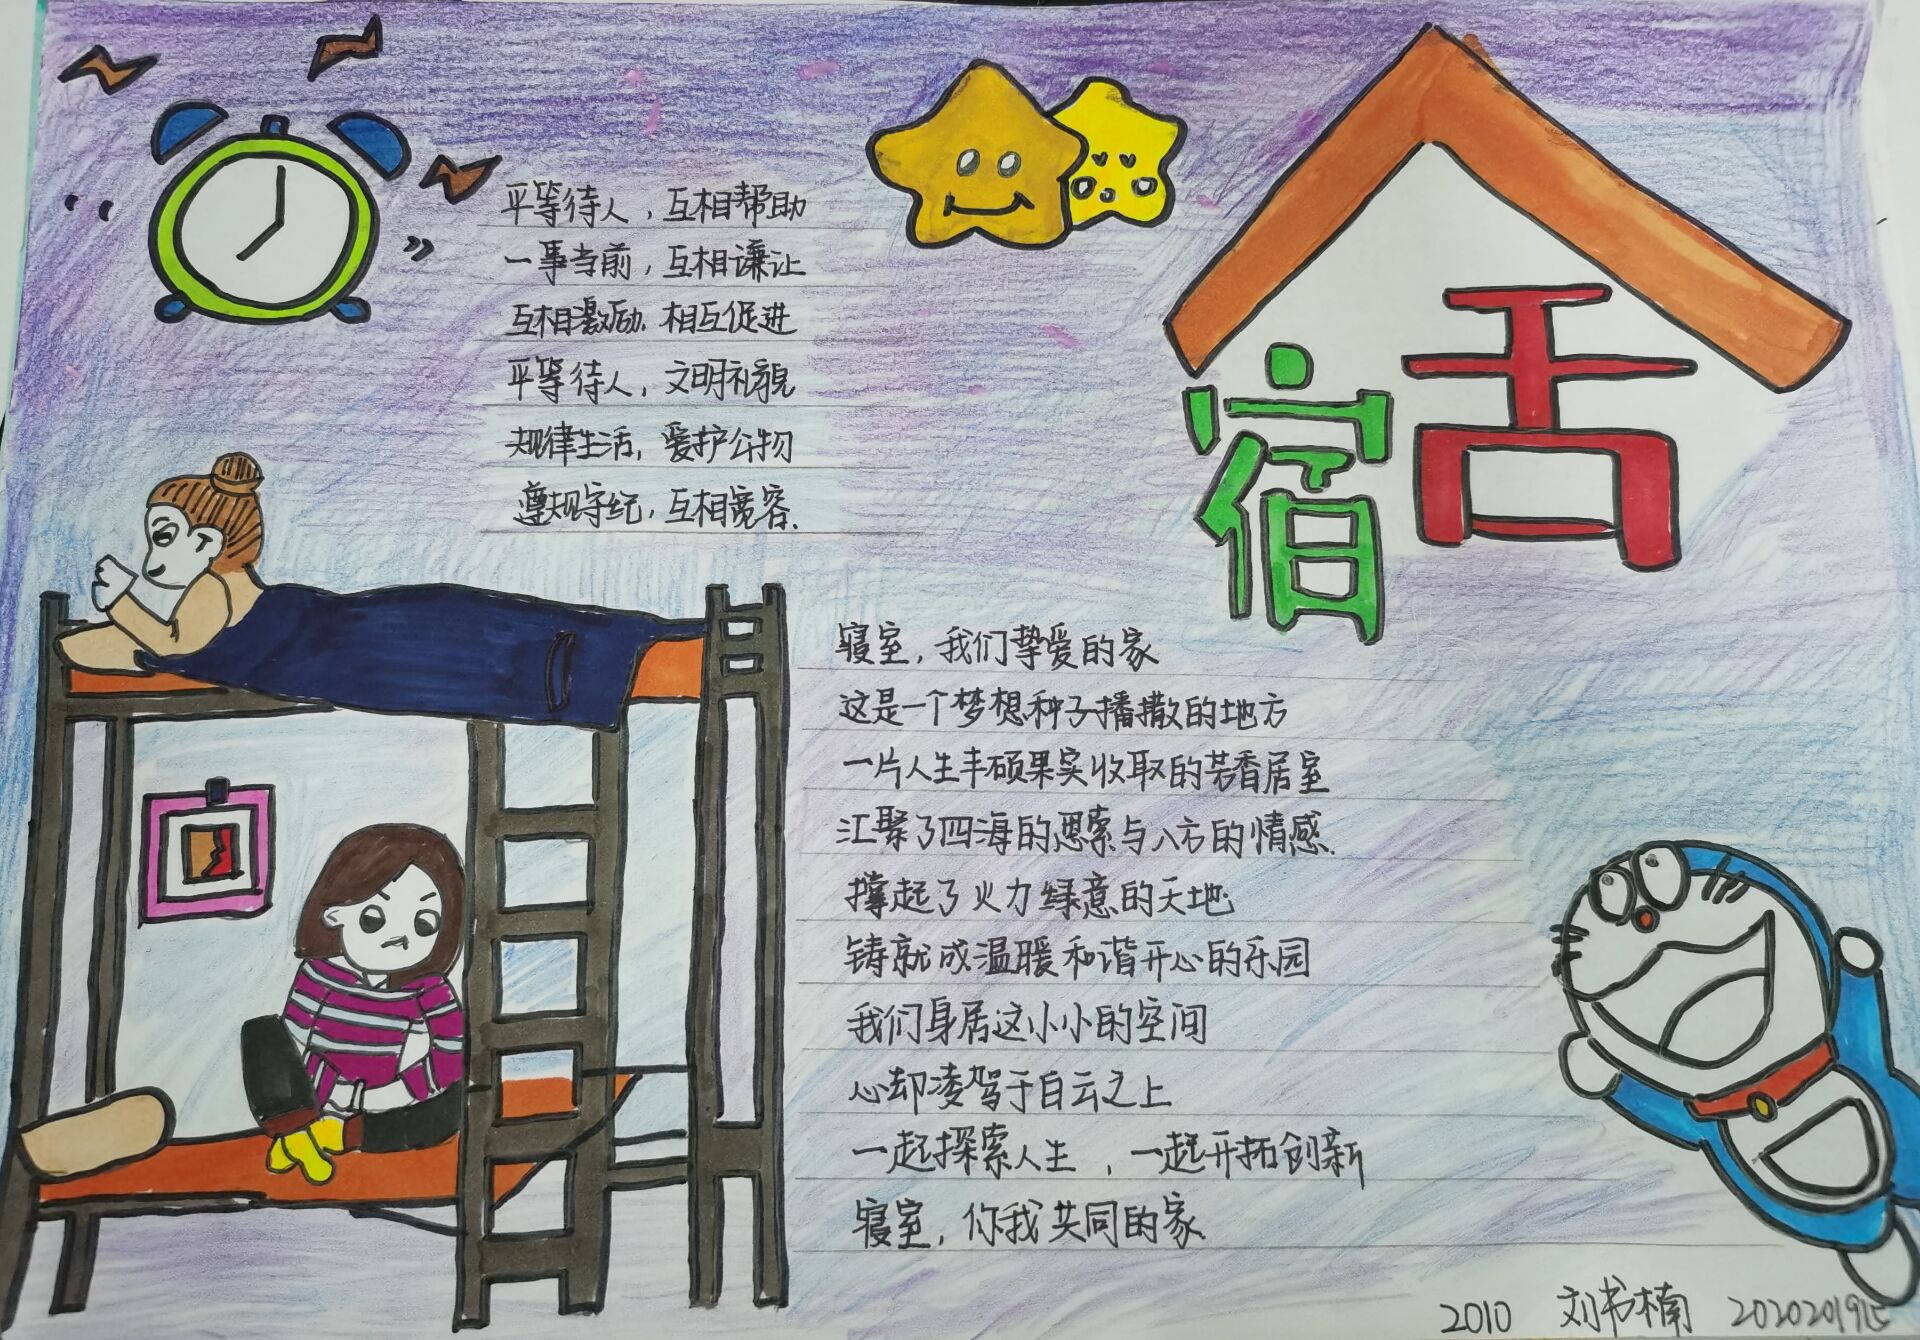 宿舍
平等待人，互相帮助
一事当前，互相谦让
互相激励，相互促进
平等待人，文明礼貌
规律生活，爱护公物
遵规守纪，互相宽容.
寝室，我们挚爱的家
这是一个梦想种子播撒的地方
一片人生丰硕果实收取的芳香居室
汇聚了四海的思索与八方的情感.
撑起了火力绿意的天地
铸就成温暖和谐开心的乐园
我们身居这小小的空间
心却凌驾于白云之上
一起探索人生，一起开拓创新
寝室，你我共同的家.
2010 刘书楠